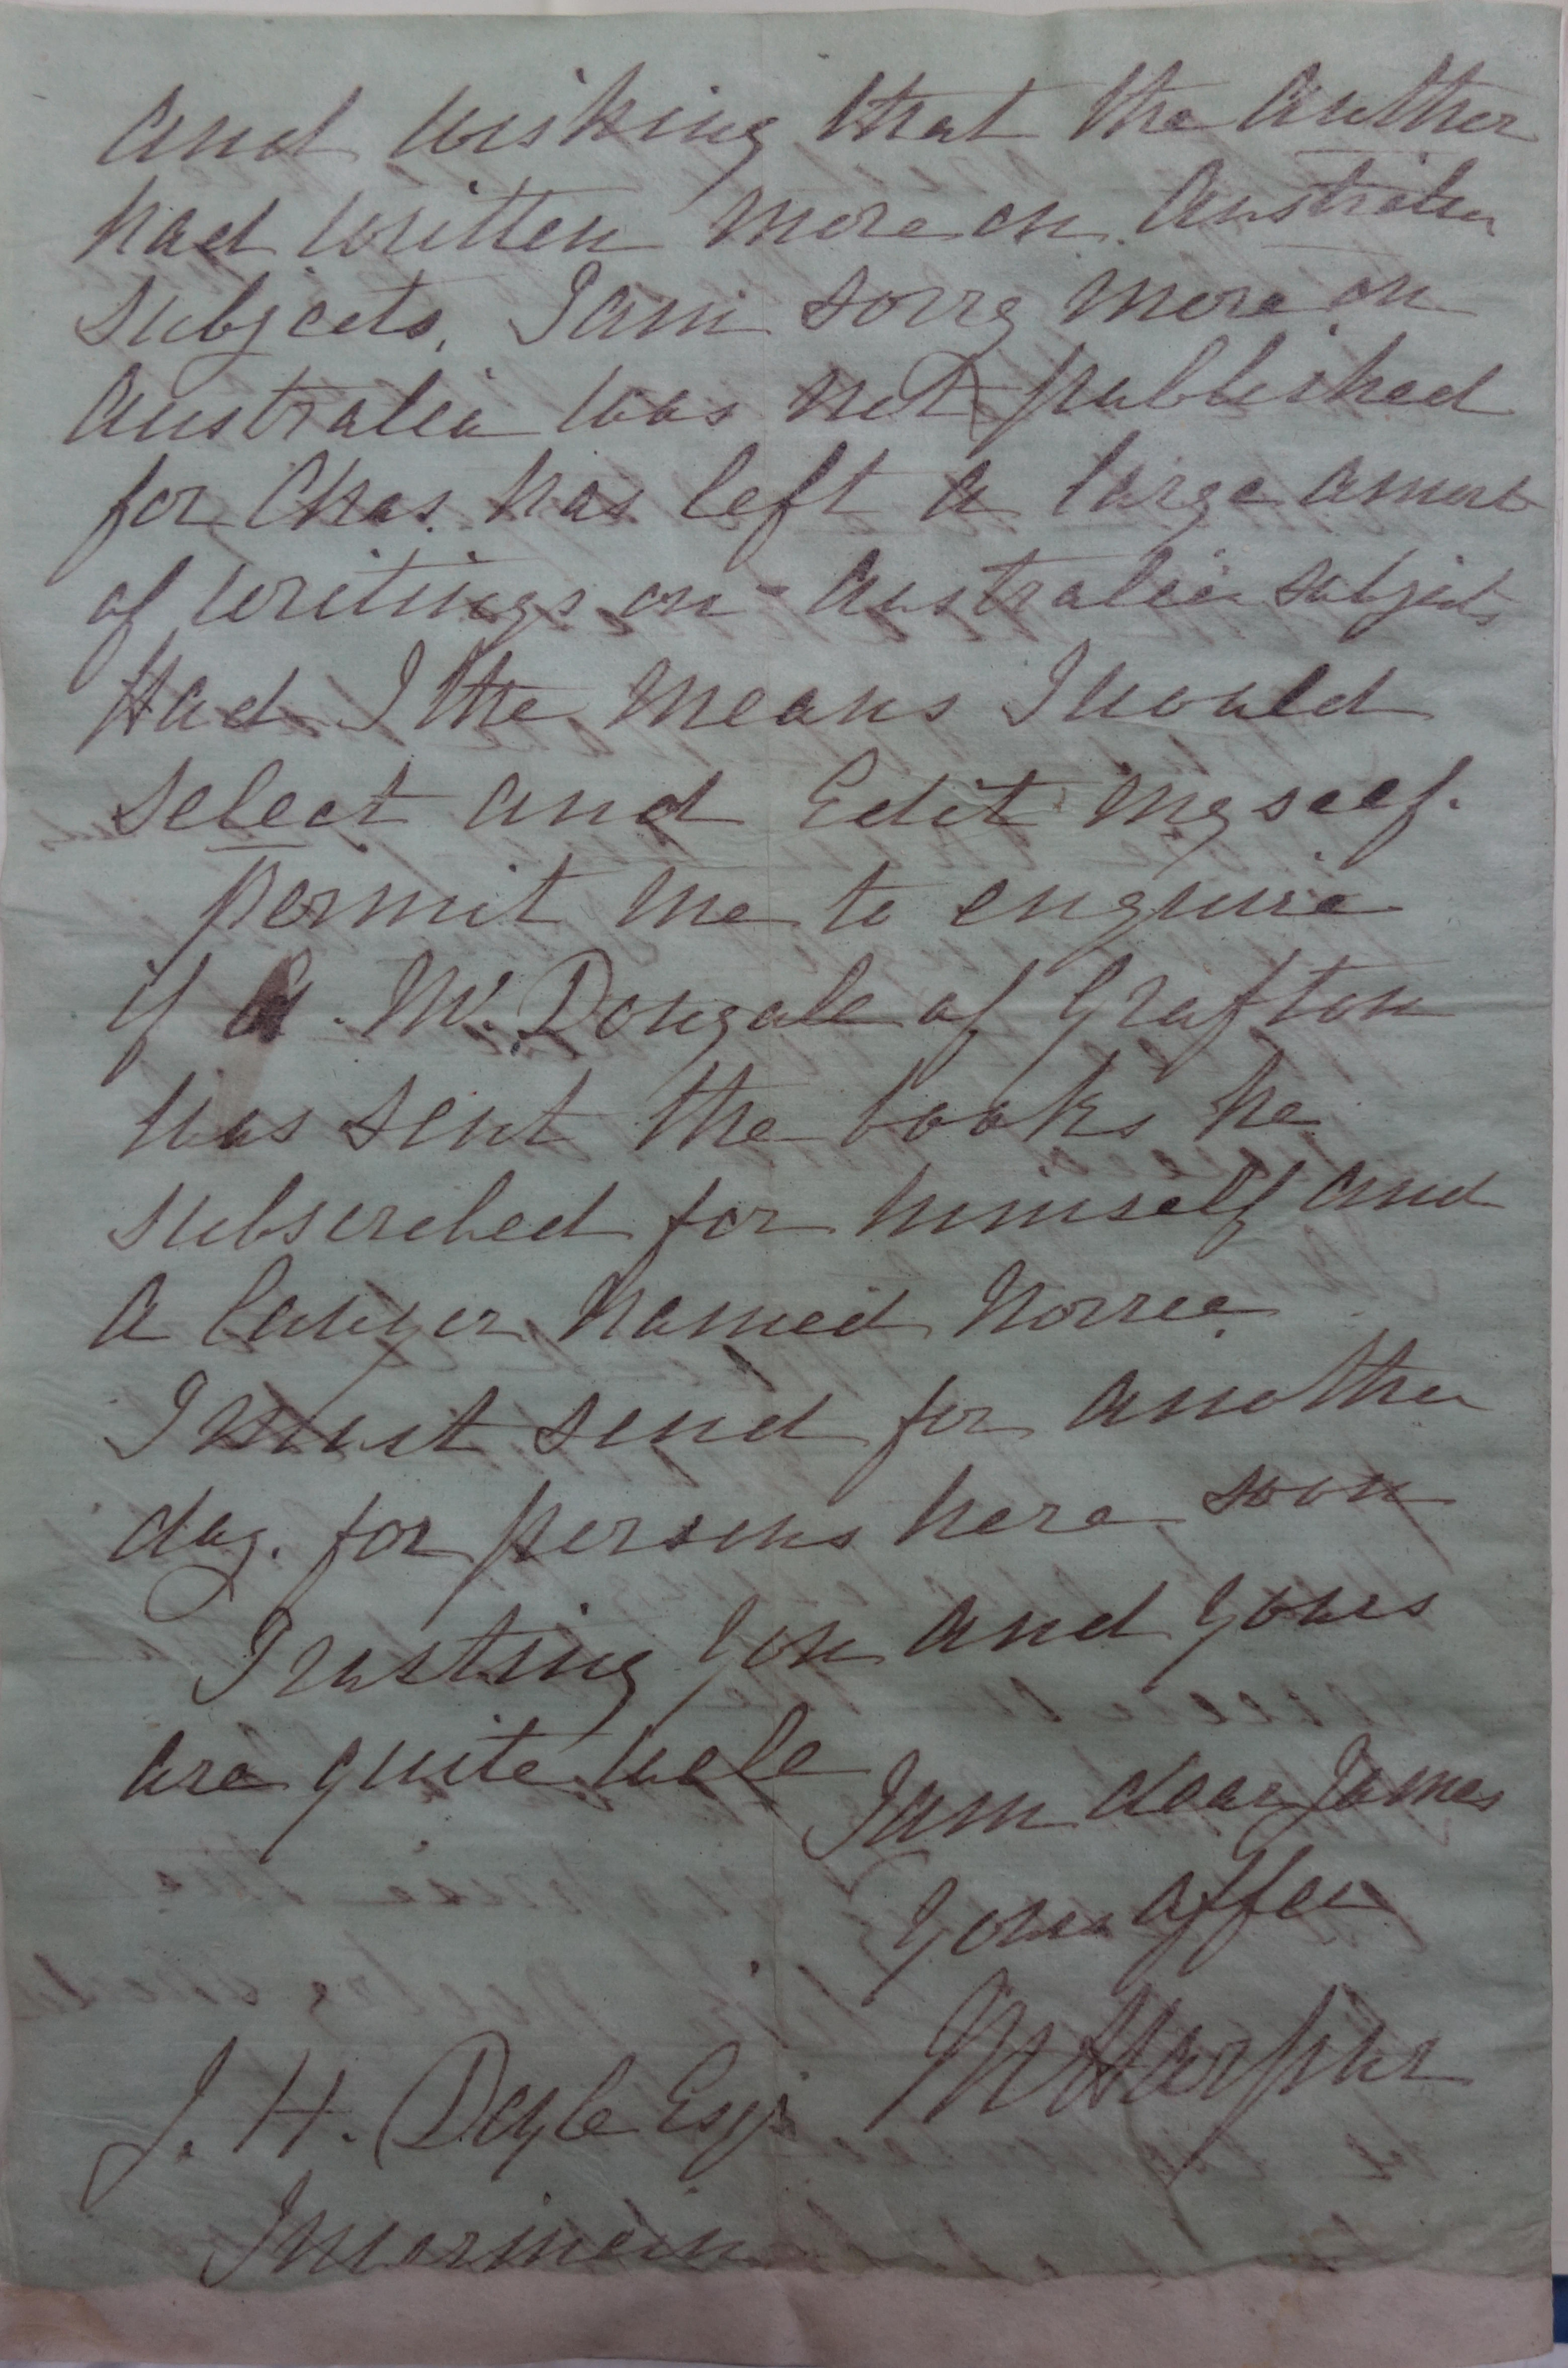 and wishing that the Author
had written more on Australian
subjects. I am sorry more on
Australia was not published
for Chas. has left a large amount
of writings on Australian subjects
Had I the means I would
select and Edit myself.
Permit me to enquire
if A. Mc. Dougale of Grafton
was sent the books he
subscribed for himself and
a lawyer named Norrie
I must send for another
day. for persons here soon
Trusting you and yours
are quite well
I am dear James
Your affecn
M Harpur
J. H. Doyle Esqr
Invermein